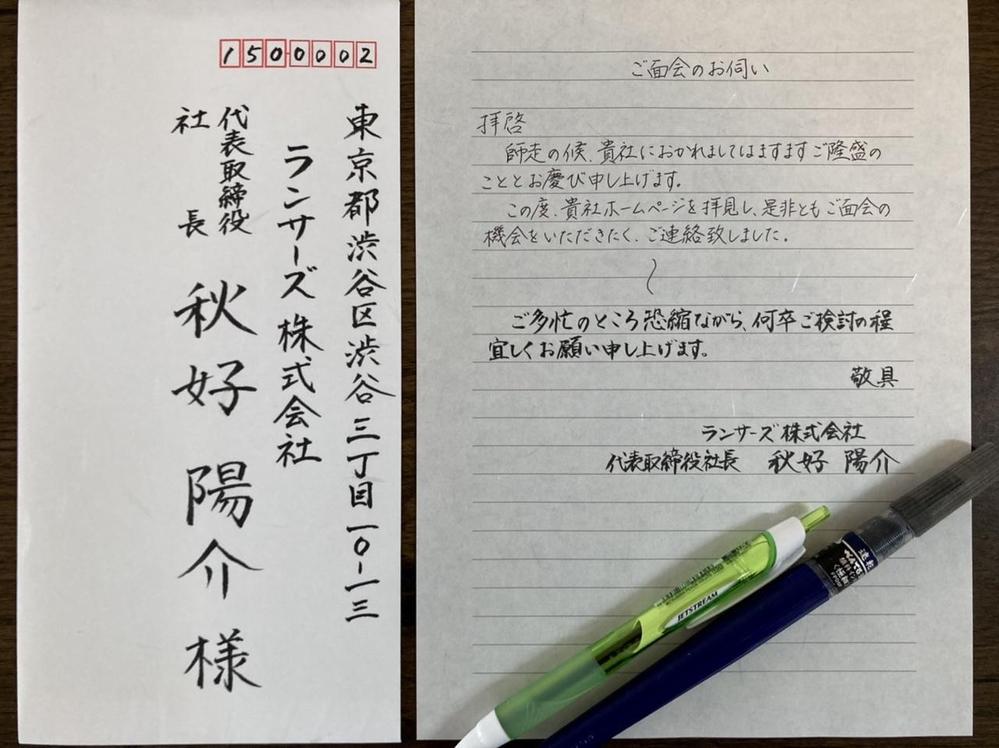 1500002
東京都渋谷区渋谷三丁目一〇-一三
ランサーズ株式会社
代表取締役
社長
秋好陽介様
ご面会のお伺い
拝啓
師走の候、貴社におかれましてはますますご隆盛の
こととお慶び申し上げます。
この度、貴社ホームページを拝見し、是非ともご面会の
機会をいただきたく、ご連絡致しました。
〜
ご多忙のところ恐縮ながら、何卒ご検討の程
宜しくお願い申し上げます。
敬具
ランサーズ株式会社
代表取締役社長 秋好 陽介
JETSTREAM